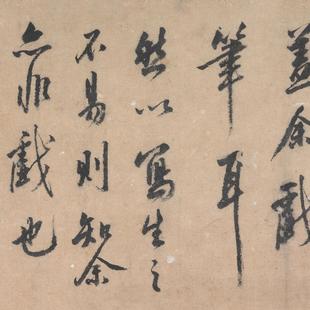 蓋余戲
筆耳
然以寫生之
不易則知余
亦非戲也